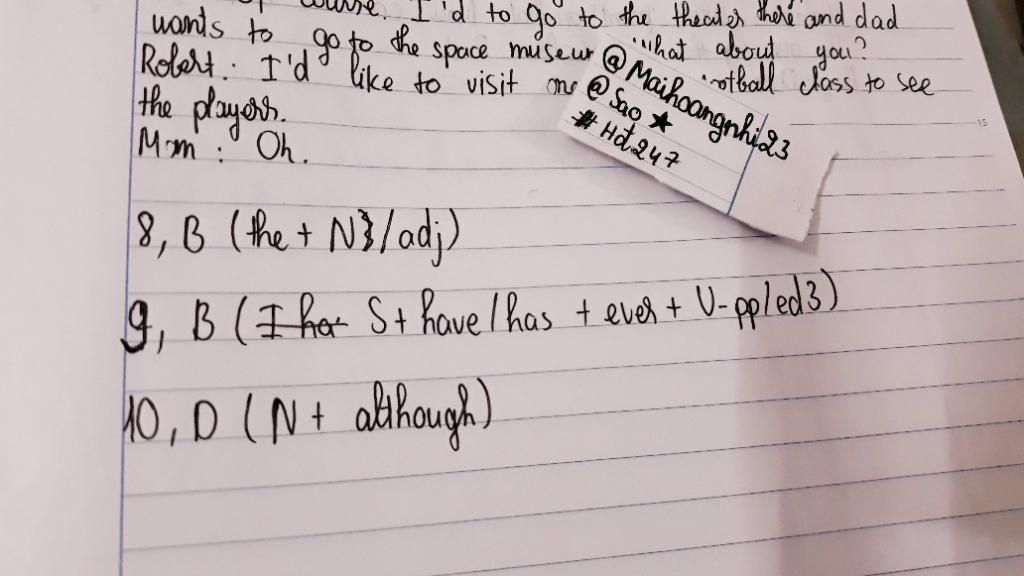 course. I'd to go to the theater there and dad
wants to go to the space museum What about you?
Robert: I'd like to visit football class to see
the players.
Mom: Oh.
@Maihoangnhi23
@Sao ★
#Hdt247
8, B (the + N/adj)
9, B (I ha S + have/has + ever + V-pp/ed3)
10, D (N + although)
15